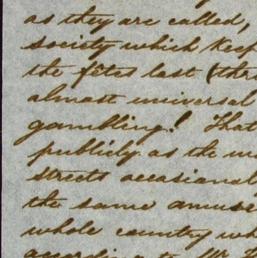 as they are called,
society which keep
the fêtes last (thr
almost universal
gambling! That
publicly as the mo
streets occasional
the same amuse
whole country wh
according to Mr